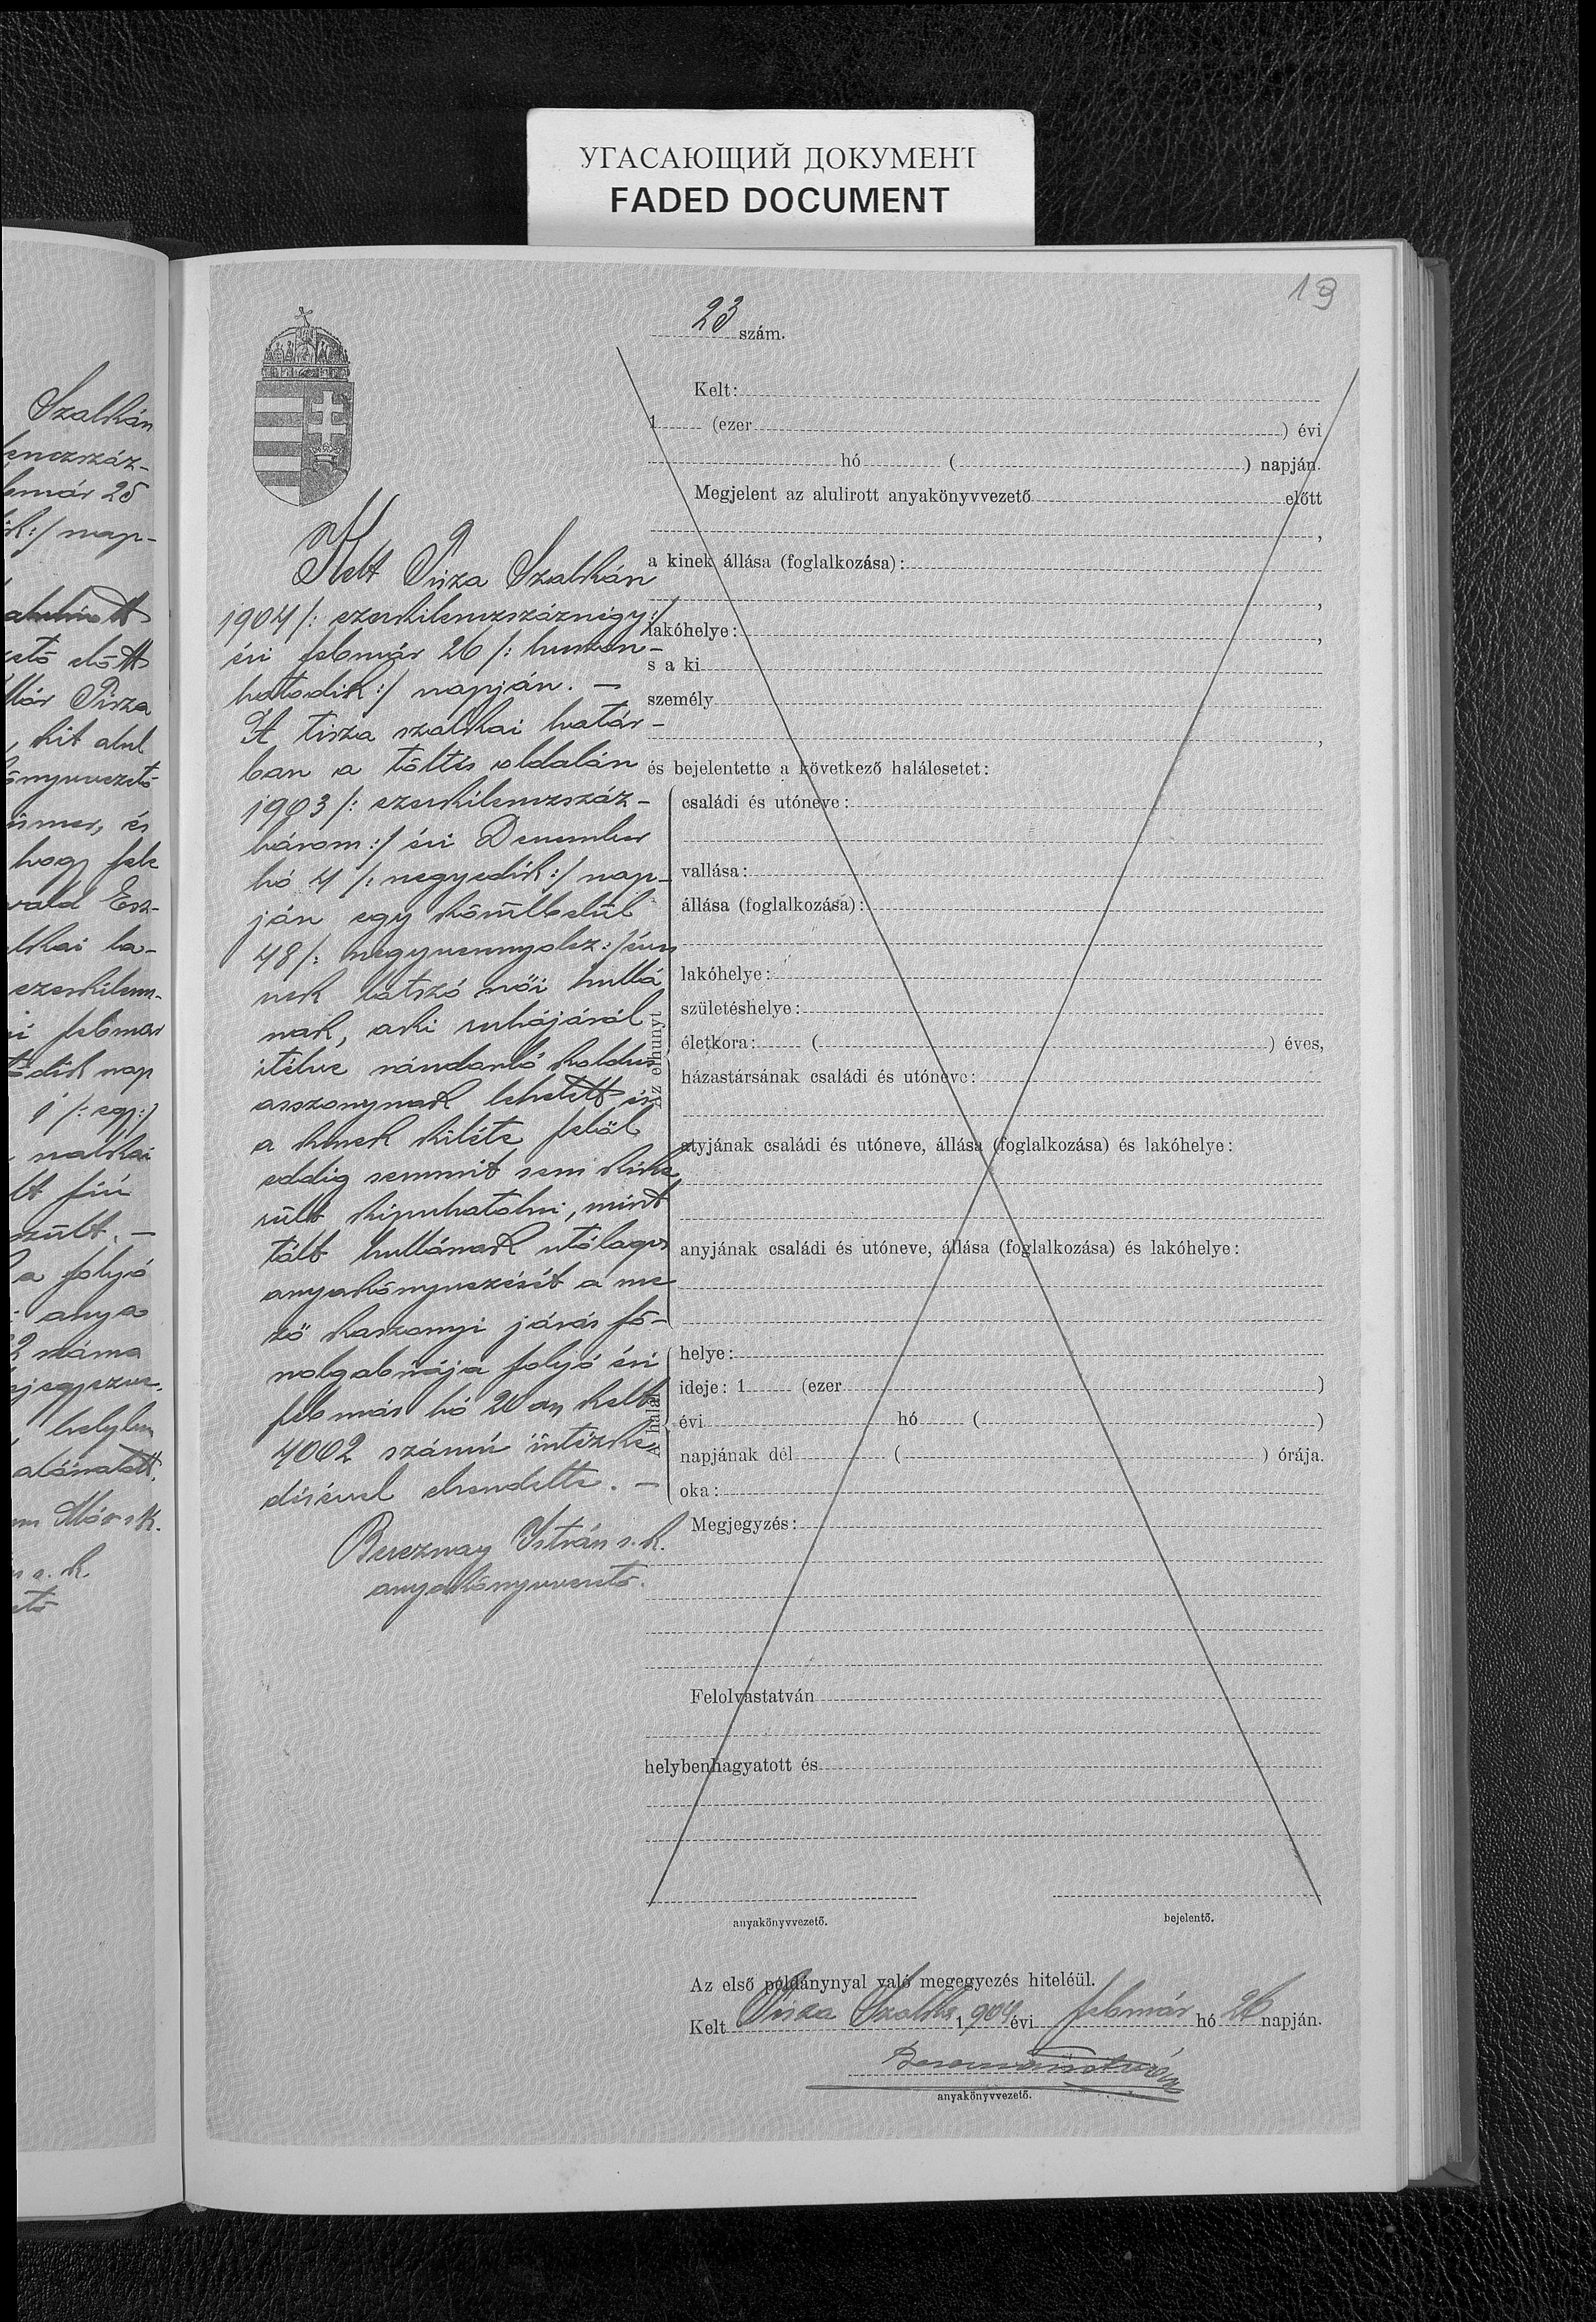 УГАСАЮЩИЙ ДОКУМЕНТ
FADED DOCUMENT
Szalkán
lenczszáz-
bruár 25
ik:/ nap-
alulirott
ető előtt
Mór Tisza
, kit alul
önyvvezető
ismer, és
hogy fele
wald Esz-
alkai la-
ezerkilencz-
vi február
ödik nap
1 /: egy:/
szalkai
lt fiú
szült. —
a folyó
anya
2 száma
bejegyezve.
helyben
aláíratott.
Mór s. k.
s. k.
ető
19
23 szám.
Kelt:
1 (ezer ) évi
hó ( ) napján.
Megjelent az alulirott anyakönyvvezető előtt
,
a kinek állása (foglalkozása):
,
lakóhelye: ,
s a ki
személy
,
és bejelentette a következő halálesetet:
Az elhunyt
családi és utóneve:
vallása:
állása (foglalkozása):
lakóhelye:
születéshelye:
életkora: ( ) éves,
házastársának családi és utóneve:
atyjának családi és utóneve, állása (foglalkozása) és lakóhelye:
anyjának családi és utóneve, állása (foglalkozása) és lakóhelye:
A halál
helye:
ideje: 1 (ezer )
évi hó ( )
napjának dél ( ) órája.
oka:
Megjegyzés:
Felolvastatván
helybenhagyatott és
anyakönyvvezető. bejelentő.
Kelt Tisza Szalkán
1904 /: ezerkilenczszáznégy:/
évi február 26 /: huszon-
hatodik:/ napján. —
A tisza szalkai határ-
ban a töltés oldalán
1903 /: ezerkilenczszáz-
három:/ évi December
hó 4 /: negyedik:/ nap-
ján egy körülbelül
48 /: negyvennyolcz:/ éves
nek látszó női hullá
nak, aki ruhájáról
itélve vándorló koldus
asszonynak lehetett és
a kinek kiléte felöl
eddig semmit sem sike
rült kipuhatolni, mint
tált hullának utólagos
anyakönyvezését a me
ző kaszonyi járás fő-
szolgabirája folyó évi
február hó 20 án kelt
4002 számú intézke
désével elrendelte. —
Bereznay István s. k.
anyakönyvvezető.
Az első példánynyal való megegyezés hiteléül.
Kelt Tisza Szalka 1904 évi február hó 26 napján.
Bereznay István
anyakönyvvezető.